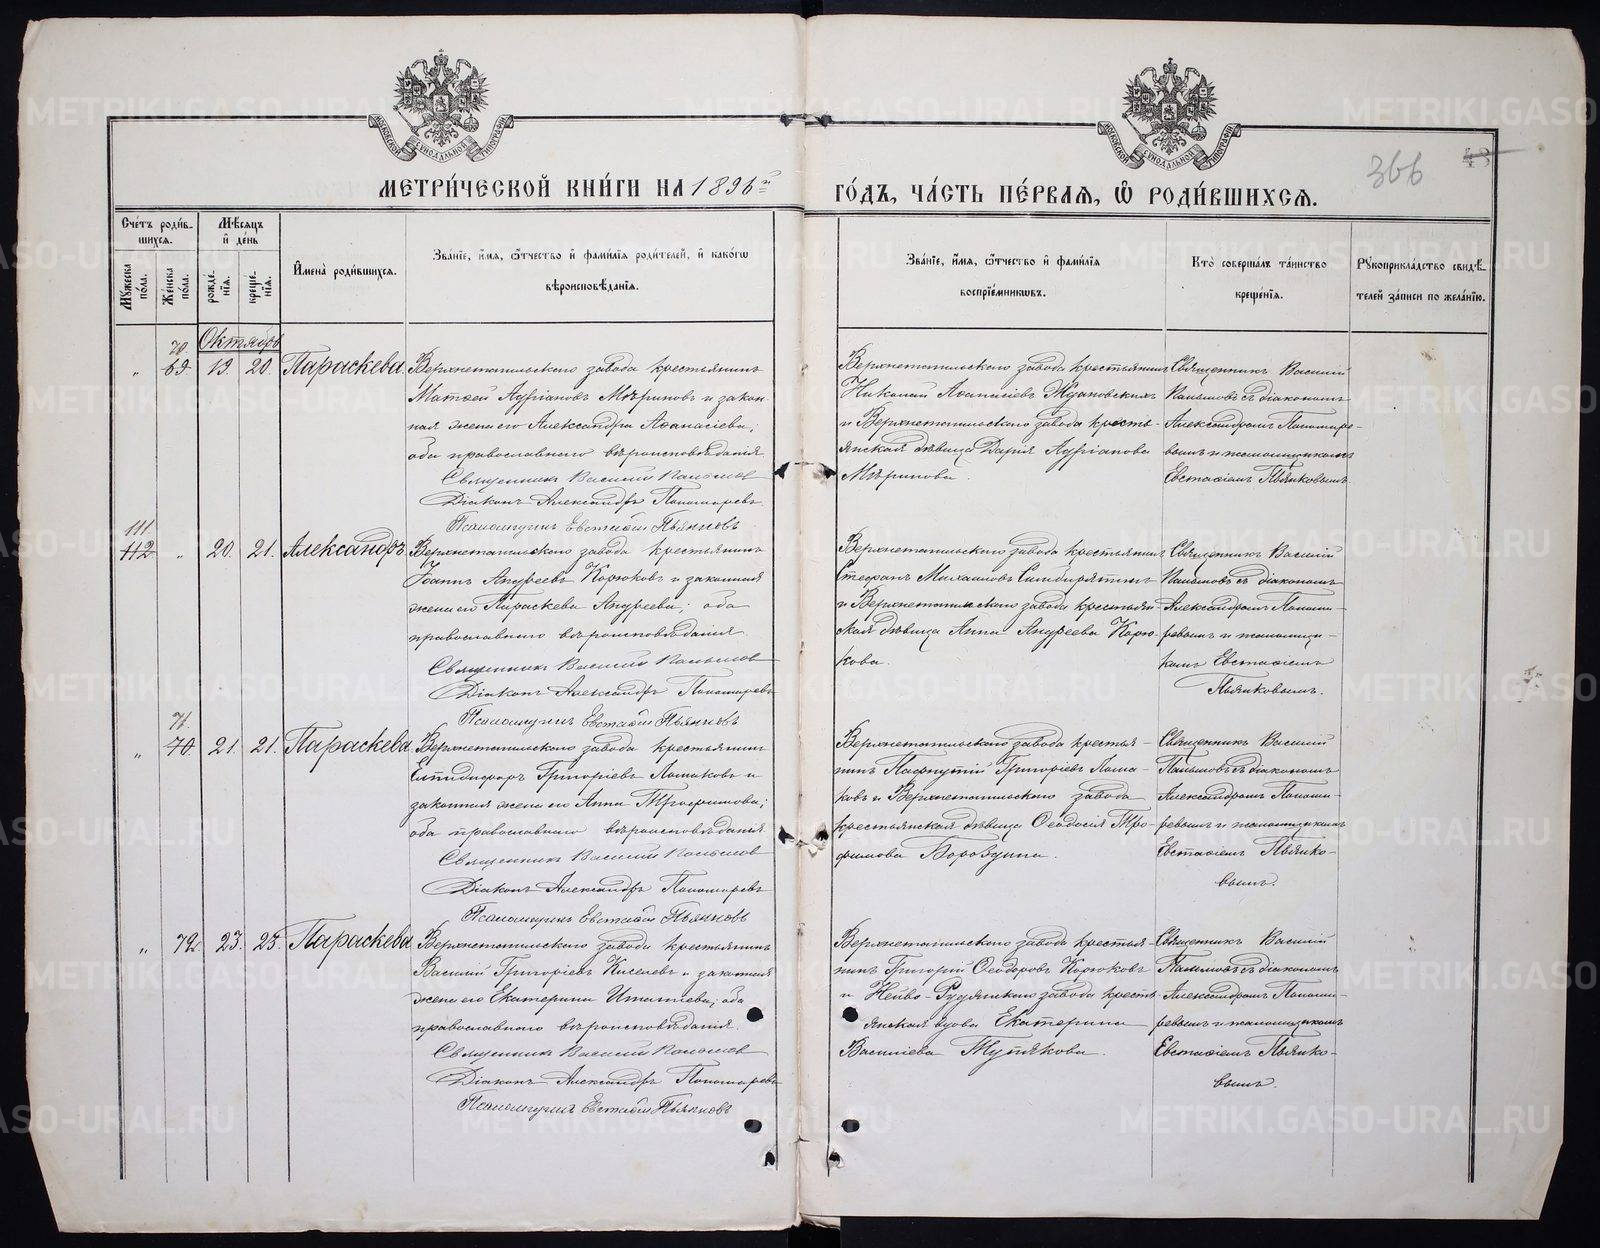 МЕТРИ́ЧЕСКОЙ КНИ́ГИ НА 1896й
ГО́ДЪ, ЧА́СТЬ ПЕ́РВАЯ, Ѿ РОДИ́ВШИХСЯ.
366
43
Сче́тъ роди́в-
шихся.
Му́жеска по́ла.
Же́нска по́ла.
Мѣ́сяцъ и де́нь
рожде́нія.
креще́нія.
И҆мена̀ роди́вшихся.
Зва́ніе, и҆́мя, ѻ҆́тчество и҆ фами́лія роди́телей, и҆ како́гѡ
вѣроисповѣ́данія.
Зва́ніе, и҆́мя, ѻ҆́тчество и҆ фами́лія
воспріе́мникѡвъ.
Кто̀ соверша́лъ та́инство
креще́нія.
Рꙋкоприкла́дство свидѣ́-
телей за́писи по жела́нію.
Октябрь
70.
„ 69. 19. 20. Параскева.
Верхнетагильскаго завода крестьянинъ
Матѳей Адріановъ Мѣриновъ и закон-
ная жена его Александра Аѳанасіева;
оба православнаго вѣроисповѣданія
Священникъ Василій
Діаконъ Александръ Пономаревъ
Псаломщикъ Евстаѳій Пьянковъ
Верхнетагильскаго завода крестьянинъ
Николай Аѳанасіевъ
и Верхнетагильскаго завода кресть-
янская дѣвица Дарія Адріанова
Мѣринова.
Священникъ Василій
съ діакономъ
Александромъ Пономаре-
вымъ и псаломщикомъ
Евстаѳіемъ Пьянковымъ
111
112 „ 20. 21. Александръ
Верхнетагильскаго завода крестьянинъ
Іоаннъ Андреевъ Корюковъ и законная
жена его Параскева Андреева; оба
православнаго вѣроисповѣданія
Священникъ Василій
Діаконъ Александръ Пономаревъ
Псаломщикъ Евстаѳій Пьянковъ
Верхнетагильскаго завода крестьянинъ
Стефанъ Михаиловъ Симбирятинъ
и Верхнетагильскаго завода крестьян-
ская дѣвица Анна Андреева Корю-
кова.
Священникъ Василій
съ діакономъ
Александромъ Понома-
ревымъ и псаломщи-
комъ Евстаѳіемъ
Пьянковымъ.
71.
„ 70. 21. 21. Параскева.
Верхнетагильскаго завода крестьянинъ
Епидифоръ Григоріевъ Ломаковъ и
законная жена его Анна Трофимова;
оба православнаго вѣроисповѣданія
Священникъ Василій
Діаконъ Александръ Пономаревъ
Псаломщикъ Евстаѳій Пьянковъ
Верхнетагильскаго завода крестья-
нинъ Пафнутій Григоріевъ Лома-
ковъ и Верхнетагильскаго завода
крестьянская дѣвица Ѳеодосія Тро-
фимова Бороздина.
Священникъ Василій
съ діакономъ
Александромъ Понома-
ревымъ и псаломщикомъ
Евстаѳіемъ Пьянко-
вымъ.
„ 72. 23. 23. Параскева
Верхнетагильскаго завода крестьянинъ
Василій Григоріевъ Киселевъ и законная
жена его Екатерина Игнатіева; оба
православнаго вѣроисповѣданія.
Священникъ Василій
Діаконъ Александръ Пономаревъ
Псаломщикъ Евстаѳій Пьянковъ
Верхнетагильскаго завода крестья-
нинъ Григорій Ѳеодоровъ Корюковъ
и Нейво-Рудянскаго завода кресть-
янская вдова Екатерина
Василіева Тупякова.
Священникъ Василій
съ діакономъ
Александромъ Понома-
ревымъ и псаломщикомъ
Евстаѳіемъ Пьянко-
вымъ.
METRIKI.GASO-URAL.RU